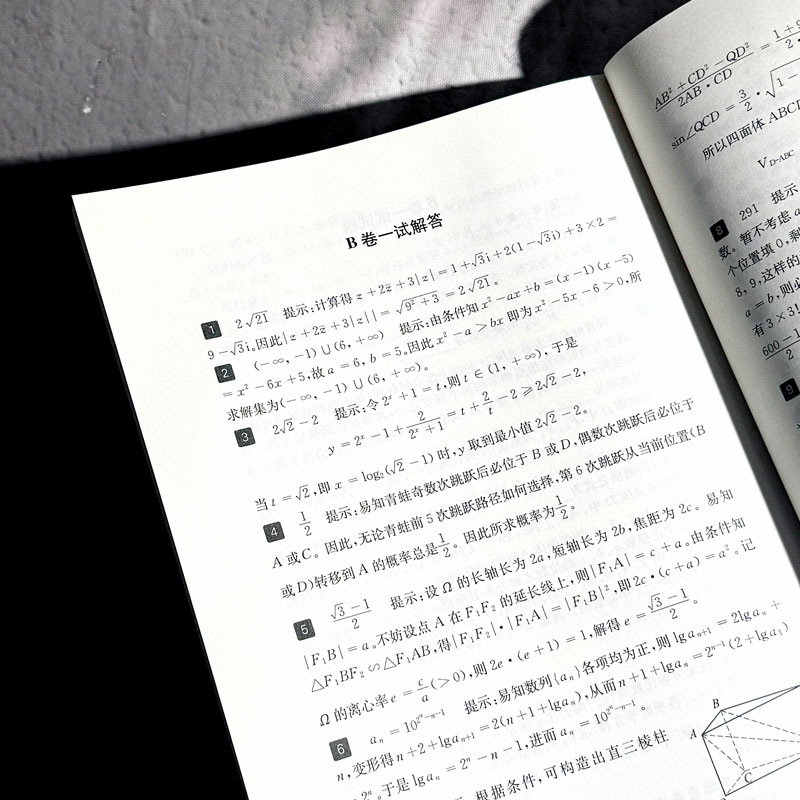 B 卷一试解答
1 2√21 提示:计算得 z+2z̄+3|z|=1+√3i+2(1-√3i)+3×2=
9-√3i。因此|z+2z̄+3|z||=√(9²+3)=2√21。
2 (-∞,-1)∪(6,+∞) 提示:由条件知 x²-ax+b=(x-1)(x-5)
=x²-6x+5,故 a=6,b=5。因此 x²-a>bx 即为 x²-5x-6>0,所
求解集为(-∞,-1)∪(6,+∞)。
3 2√2-2 提示:令 2ˣ+1=t,则 t∈(1,+∞),于是
y=2ˣ-1+2/(2ˣ+1)=t+2/t-2≥2√2-2,
当 t=√2,即 x=log₂(√2-1)时,y 取到最小值 2√2-2。
4 1/2 提示:易知青蛙奇数次跳跃后必位于 B 或 D,偶数次跳跃后必位于
A 或 C。因此,无论青蛙前 5 次跳跃路径如何选择,第 6 次跳跃从当前位置(B
或 D)转移到 A 的概率总是 1/2。因此所求概率为 1/2。
5 (√3-1)/2 提示:设 Ω 的长轴长为 2a,短轴长为 2b,焦距为 2c。易知
|F₁B|=a。不妨设点 A 在 F₁F₂ 的延长线上,则|F₁A|=c+a。由条件知
△F₁BF₂∽△F₁AB,得|F₁F₂|·|F₁A|=|F₁B|²,即 2c·(c+a)=a²。记
Ω 的离心率 e=c/a(>0),则 2e·(e+1)=1,解得 e=(√3-1)/2。
6 aₙ=10^(2ⁿ-n-1) 提示:易知数列{aₙ}各项均为正,则 lgaₙ₊₁=2lgaₙ+
n,变形得 n+2+lgaₙ₊₁=2(n+1+lgaₙ),从而 n+1+lgaₙ=2ⁿ⁻¹(2+lga₁)
=2ⁿ。于是 lgaₙ=2ⁿ-n-1,进而 aₙ=10^(2ⁿ-n-1)。
根据条件,可构造出直三棱柱
A
B
C
(AB²+CD²-QD²)/(2AB·CD)=
sin∠QCD=3/2·
所以四面体 ABCD
V_D-ABC
8 291 提示
数。暂不考虑
个位置填 0,剩
8,9,这样的
a=b,则必
有 3×31
600-
2
9